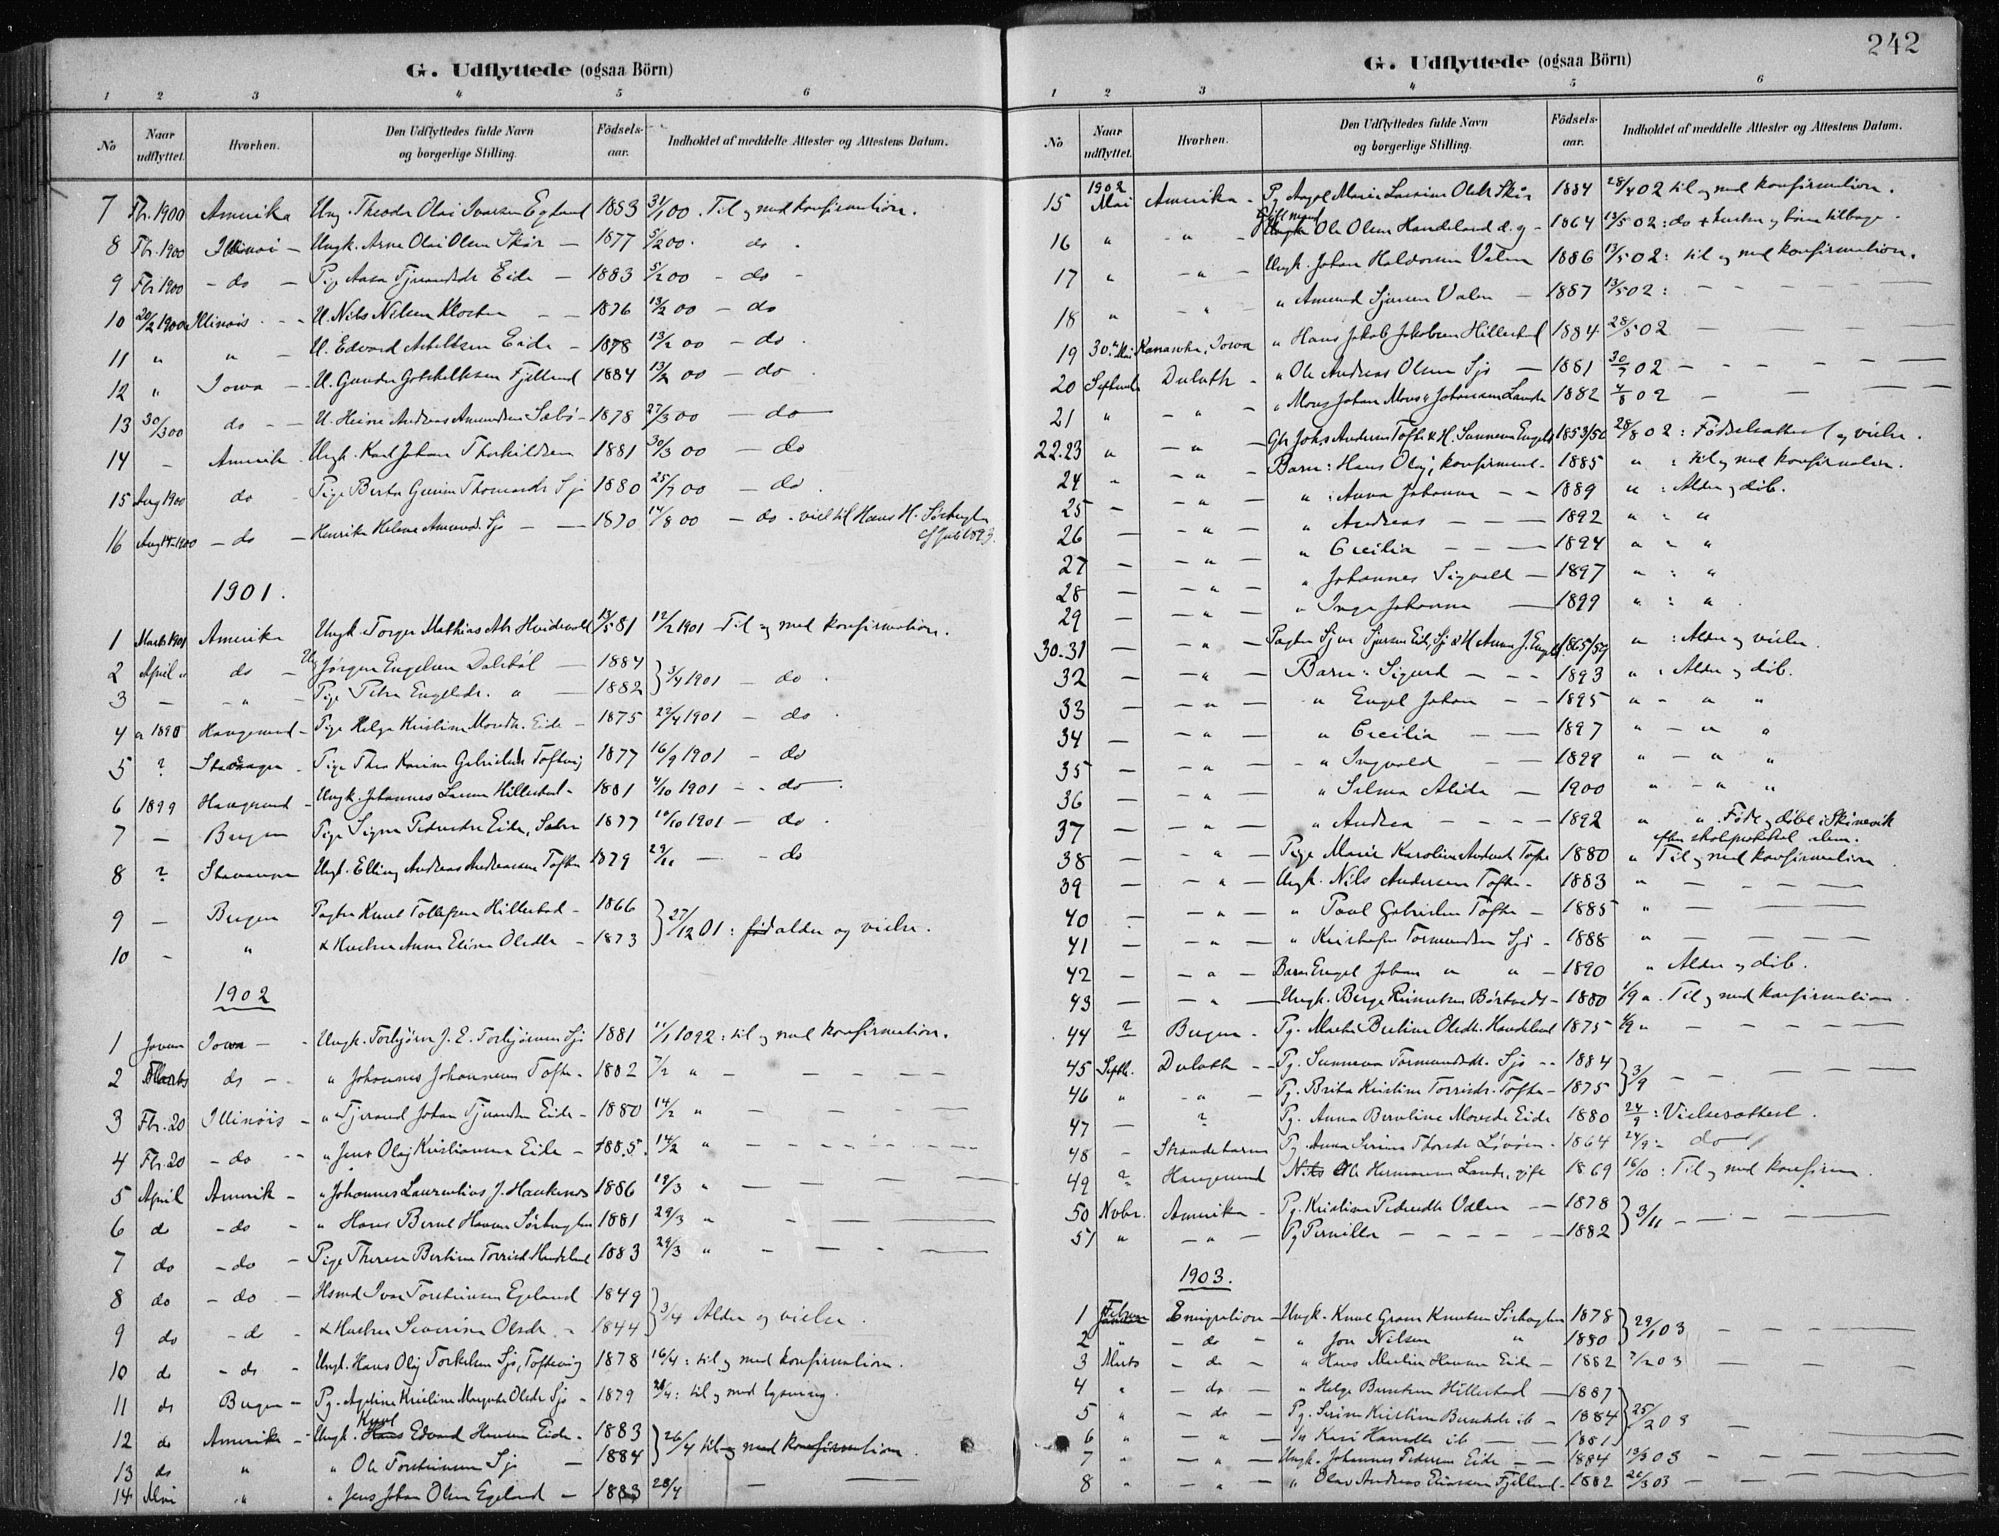 242
G. Udflyttede (ogsaa Börn)
1 2 3 4 5 6
No Naar udflyttet. Hvorhen. Den Udflyttedes fulde Navn og borgerlige Stilling. Födsels-aar. Indholdet af meddelte Attester og Attestens Datum.
7 Fbr. 1900 Amerika Ung. Theodor Olai Ivarsen Egeland 1883 31/1 00. Til og med konfirmation.
8 Fbr. 1900 Illinoi – Ungk. Arne Olai Olsen Skår – 1877 5/2 00. do.
9 Fbr 1900 – do – Pige Aasa Tjerandsdtr Eide – 1883 5/2 00 – do –
10 20/2 1900 Illinois – U. Nils Nilsen Kloster – – 1876 13/2 00 – do
11 " " – U. Edvard Eide – 1878 13/2 00 – do.
12 " Iowa – U. Gunder Fjelland 1884 13/2 00 – do.
13 30/3 00 do – – U. Andreas Amundsen Sæbø – 1878 27/3 00 – do
14 – Amerik. Ungk. Karl Johan Thorkildsen 1881 30/3 00 – do
15 Aug 1900 do – Pige Berta Thomasdtr Sjo 1880 25/7 00 – do.
16 Aug 14-1900 – do – Henrika Helene Amunds. Sjo – – 1870 14/8 00 – do – viet til Hans H. Sørhuglen
1901.
1 Marts 1901 Amerika Ungk. Torger Mathias Hvidevold 13/5 81 12/2 1901 – Til og med konfirmation.
2 April " do – Ung Jørgen Engelsen Dalsbøl – 1884 } 3/4 1901 – do.
3 – – " – Pige Petra Engelsdr. " – 1882
4 " 1898 Haugesund – Pige Helga Kristine Monsdtr. Eide – 1875 22/4 1901 – do.
5 ? Stavanger – Pige Thea Karine Gabrielsdtr Toftevig 1877 16/9 1901 – do
6 1899 Haugesund – Ungk. Johannes Larsen Hillestad – 1881 4/10 1901 – – do –
7 – Bergen Pige Signe Pedersdtr Eide, 1877 10/10 1901 – do.
8 ? Stavanger Ungk. Elling Andreas Andreassen Tofte 1879 29/11 – – do
9 – Bergen Pagter Knut Tollefsen Hillestad – 1866 } 27/12 01 : alder og vielse.
10 – " & Hustru Anna Elina Olsdtr – 1873
1902
1 Januar Iowa – – Ungk. Torbjørn J. E. Torbjørnsen Sjo 1881 11/1 1092 : til og med konfirmation.
2 Marts do – – " Johannes Johannesen Tofte – 1882 7/2 " – – – –
3 Fbr. 20 Illinois – " Tjerand Johan Tjerandsen Eide – 1880 14/2 " – – – –
4 Fbr. 20 – do – – " Jens Olaj Kristiansen Eide – 1885. 14/2 " – – – –
5 April Amerik – " Johannes Laurentius J. Haukenes 1886 18/3 " – – – –
6 do – do – " Hans Bernt Hansen Sørhuglen 1881 29/3 " – – – –
7 do – do – Pige Therese Bertine Torrisd. Handeland 1883 29/3 " – – – –
8 do – do – Hsmd Ivar Torstensen Egeland 1849 } 3/4 Alder og vielse.
9 do – do – & Hustru Severine Olsdr. – 1844
10 do – do – Ungk. Hans Olaj Torkelsen Sjo, Toftevig 1878 16/4 : til og med konfirmation.
11 do Bergen – Pg. Angeline Kristine Margrete Olsdr Sjo – 1879 : til og med lysning.
12 do Amerika – Ungk. Knut Edvard Hansen Eide – 1883 } 26/4 til og med konfirmation.
13 do " " Ole Torstensen Sjo – 1884
14 Mai " " Jens Johan Olsen Egeland – 1883 28/4 –
G. Udflyttede (ogsaa Börn)
1 2 3 4 5 6
No Naar udflyttet. Hvorhen. Den Udflyttedes fulde Navn og borgerlige Stilling. Födsels-aar. Indholdet af meddelte Attester og Attestens Datum.
15 1902 Mai Amerika – Pg Marie Lovise Olsdtr Skår 1884 28/4 02 til og med konfirmation.
16 " – " – Ole Olsen Handeland d. y – 1864 13/5 02 : do + hustru og børn tilbage.
17 " – " Ungk. Johan Haldorsen Valen 1886 13/5 02 : til og med konfirmation.
18 " – " " Amund Sjursen Valen – 1887 13/5 02 : – – – –
19 30. Mai Kanawha, Iowa " Hans Jakob Jakobsen Hillestad 1884. 28/5 02 – – – –
20 Septemb Duluth – " Ole Andreas Olsen Sjo – 1881 30/7 02 – – – –
21 " – " – " Mons Johan Johansen Lande 1882 4/8 02 – –
22.23 " – " – Gbr Johs Andersen Tofte & H. Sunneva Engelsd 1853/56 28/8 02 : Fødselsattest og vielse.
24 " – " – Barn : Hans Olaj, konfirmeret – 1885 " : til og med konfirmation.
25 – – " – " : Anna Johanna – – 1889 " : Alder og dåb.
26 – – " – " Andreas – – – 1892 " " "
27 – – " – " Cecilia – – – 1894 " – "
28 – – " – " Johannes Sigvald – 1897 " : "
29 – – " – " Inga Johanna – 1899 " : " .
30.31 – – " – Pagter Sjur Sjursen Eide, Sjo & H Anna J. Engelsd. 1865/59 " : Alder og vielse.
32 – – " – Barn : Sigurd – – – 1893 " : Alder og dåb.
33 – – " – " Engel Johan – – 1895 " – " "
34 – – " – " Cecilia – – 1897 " – " "
35 – – " – " Ingvald – – 1899 " – " "
36 – – " – " Selma Alida – 1900 " – " "
37 – – " – " Andrea – – – – 1892 " " Født og døbt i Skånevik efter skoleprotokol alene.
38 – – " – Pige Marie Karoline Andersd Tofte 1880 " Til og med konfirmation
39 – – " – Ungk. Nils Andersen Tofte – 1883 " – – –
40 – – " – " Poul Gabrielsen Tofte – 1885 " – – –
41 – – " – " Kristofer Tormundsen Sjo – 1888 " – – –
42 – – " – Barn Engel Johan " " – 1890 " Alder og dåb.
43 – – " – Ungk. Berge Børtvedt – 1880 1/9 ". Til og med konfirmation.
44 ? Bergen – Pg. Marta Bertine Olsdtr. Handeland 1875 – – – –
45 Septb. Duluth – – Pg. Sunneva Tormundsdtr. Sjo – – 1884 } 3/9 – – – –
46 " – " – Pg. Brita Kristine Torrisdr. Tofte – 1875
47 – ? Pg. Anna Bertine Monsdr Eide 1880 24/9 : Vielsesattest.
48 – Strandebarm Pg. Anna Serine Thorsdr Løvøen – 1864 24/9 – do
49 ? Haugesund Ole Hermansen Lande, gift 1869 16/10 : Til og med konfirm.
50 Nvbr. Amerika – Pg. Kristine Pedersdtr Valen – – 1878 } 3/11 – – – –
51 " – " – Pg Pernilla – – – – – 1882
1903.
1 Februar Emigration – Ungk. Knut Gram Knutsen Sørhuglen 1878 } 29/1 03 – –
2 " – do " " Jon Nilsen " 1880
3 Marts – do – " Hans Martin Hansen Eide – 1882 7/2 03 – –
4 " – do – " Helge Berntsen Hillestad – 1887 } 25/2 03 –
5 " – do Pg. Serine Kristine Berntsdtr ib – 1884
6 " – " – " Kari Hansdtr ib – – 1881
7 " – " – Ungk. Johannes Pedersen Eide – – 1884 13/3 03 – – –
8 " – " " Olav Andreas Fjelland – 1882 20/3 03 – –